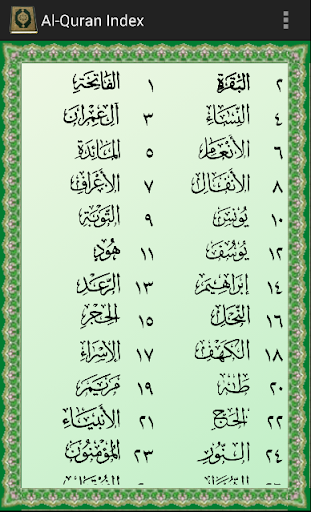 Al-Quran Index
الفاتحة ١ البقرة ٢
آل عمران ٣ النساء ٤
المائدة ٥ الأنعام ٦
الأعراف ٧ الأنفال ٨
التوبة ٩ يونس ١٠
هود ١١ يوسف ١٢
الرعد ١٣ إبراهيم ١٤
الحجر ١٥ النحل ١٦
الإسراء ١٧ الكهف ١٨
مريم ١٩ طه ٢٠
الأنبياء ٢١ الحج ٢٢
المؤمنون ٢٣ النور ٢٤